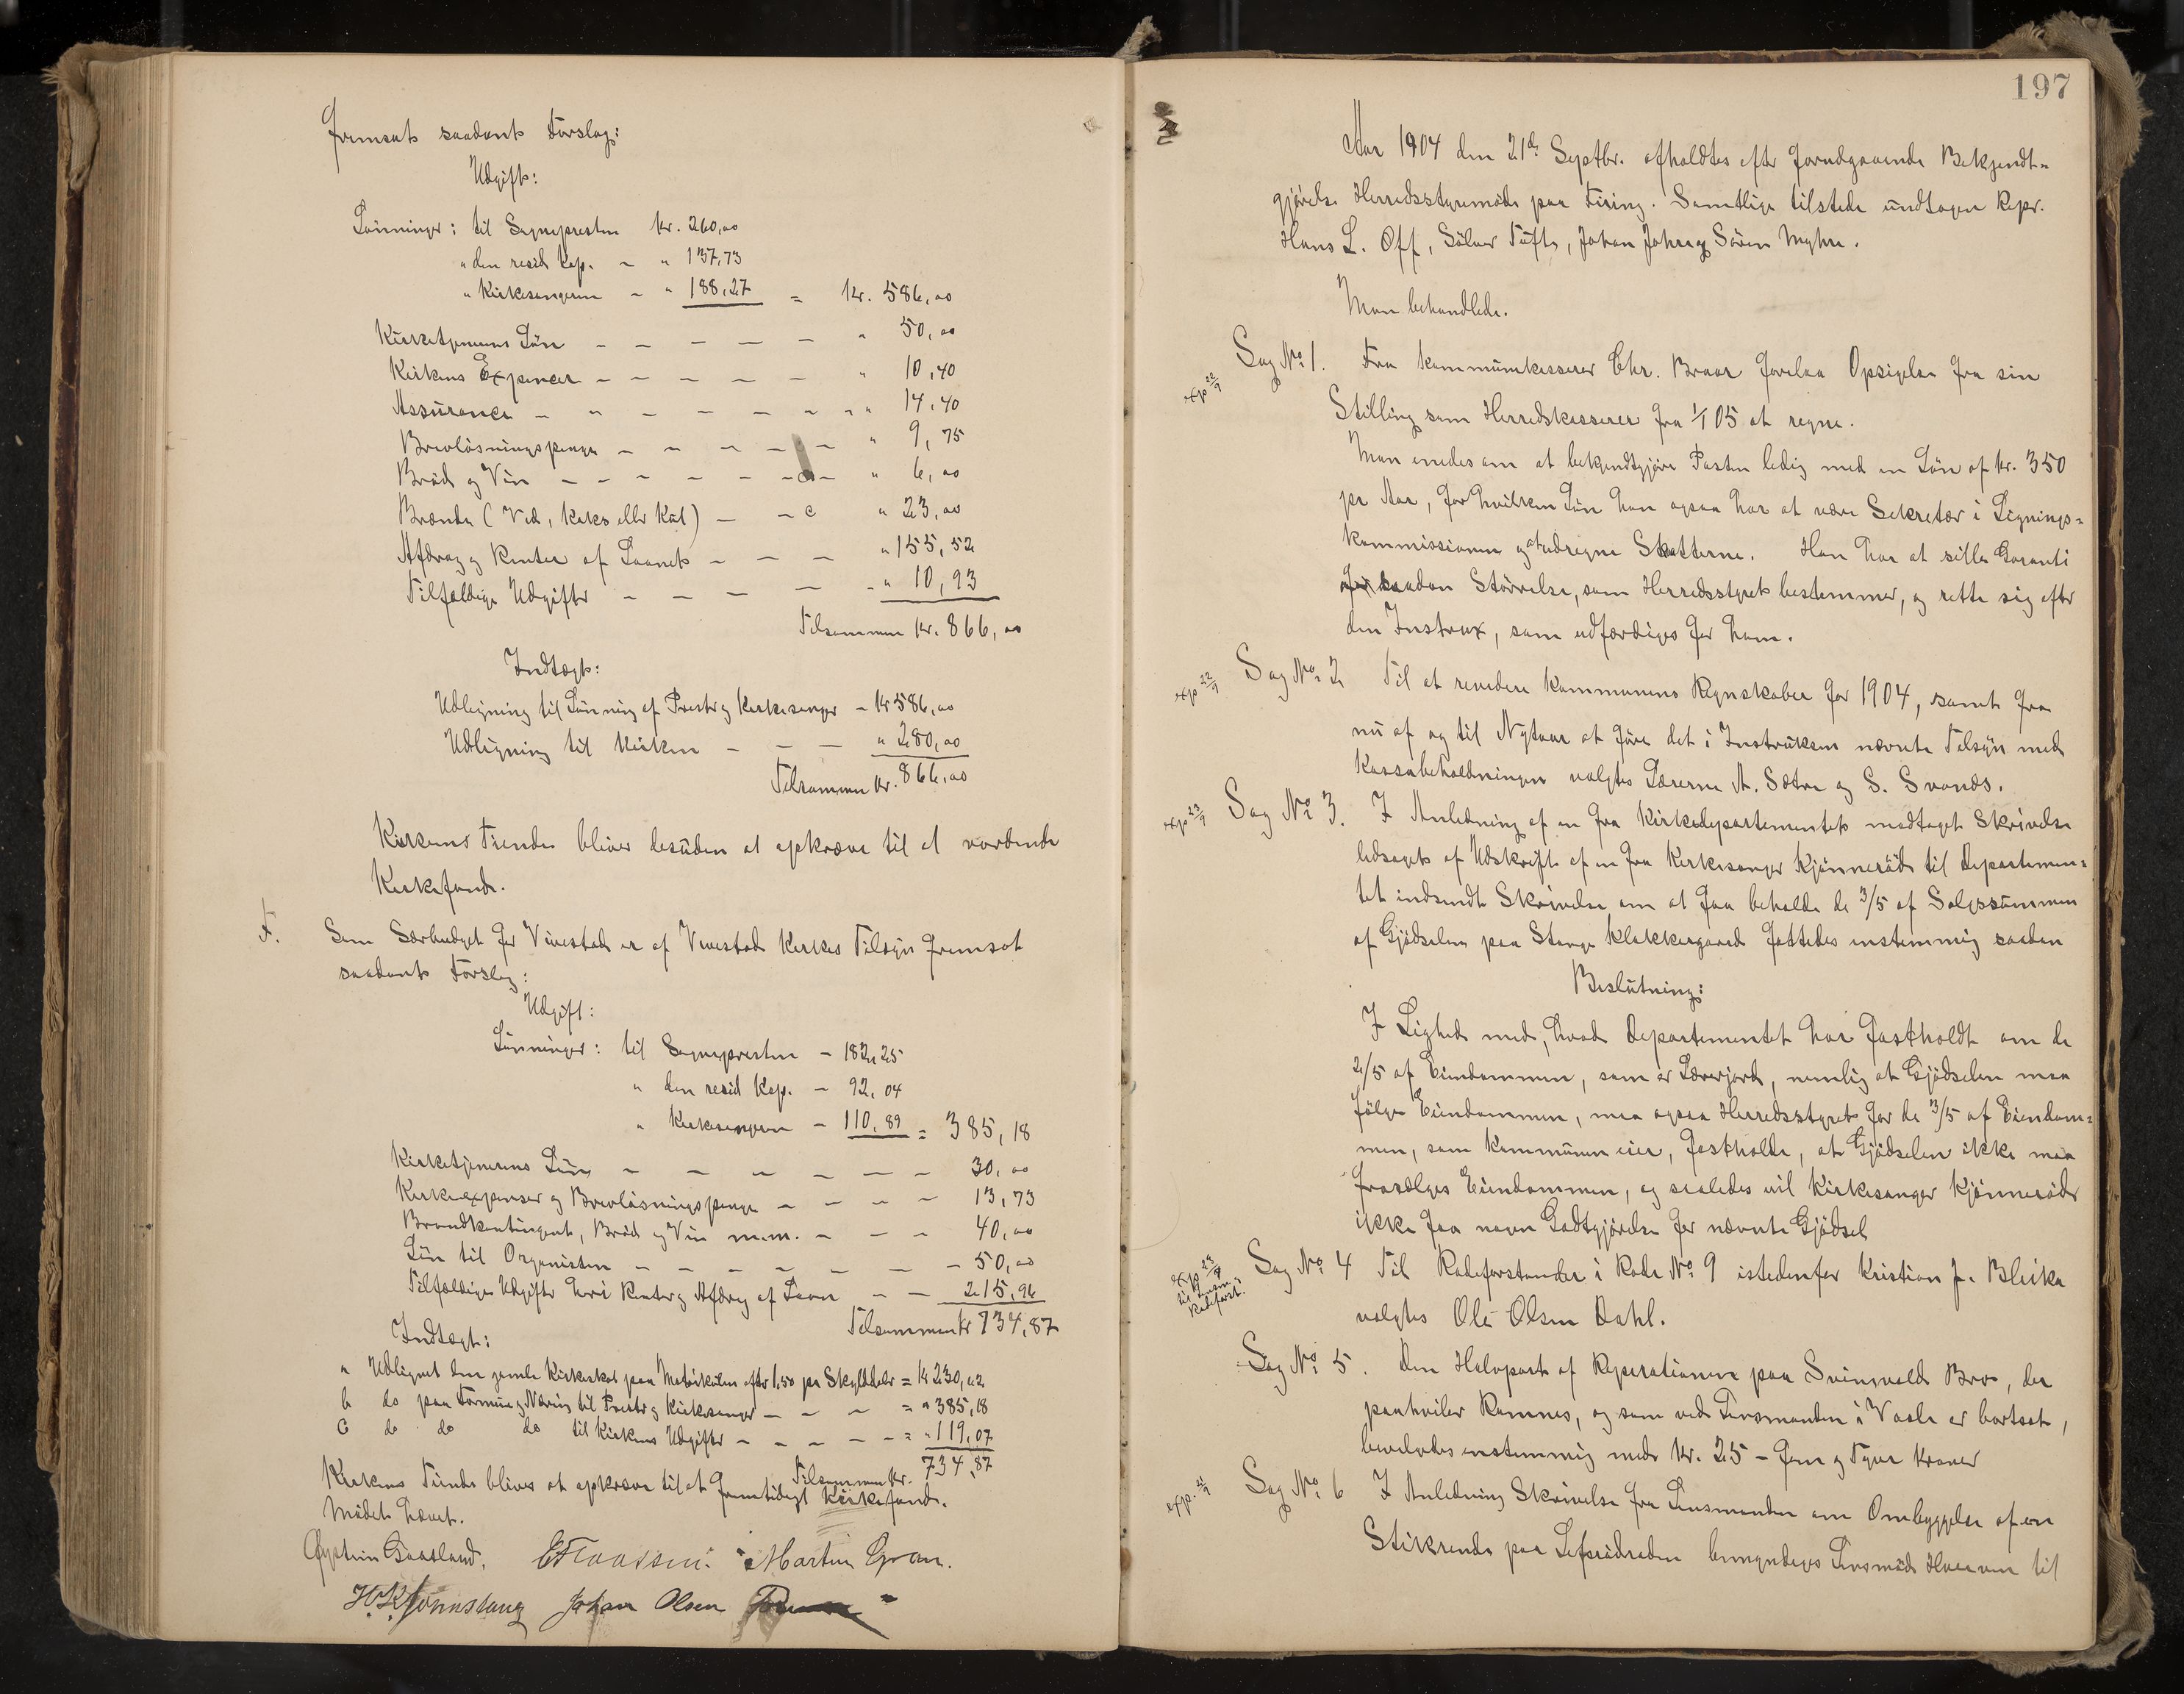 fremsat saadant Forslag:
Udgift:
Lønninger: til Sognepresten kr. 260,00
" den resid Kap. – " 137,73
" Kirkesangeren – " 188,27 = Kr. 586,00
Kirketjenerens Løn – – – – – " 50,00
Kirkens Expencer – – – – – " 10,40
Assurance – " – – – – " " 14,40
Brevløsningspenge – – – – – " 9,75
Brød og Vin – – – – – – – " 6,00
Brænde (Ved, Koks eller Kul) – – " 23,00
Afdrag og Renter af Laanet – – – " 155,52
Tilfældige Udgifter – – – – – " 10,93
Tilsammen Kr. 866,00
Indtægt:
Udligning til Lønning af Prest og Kirkesanger – Kr 586,00
Udligning til Kirken – – – " 280,00
Tilsammen Kr. 866,00
Kirkens Tiender bliver desuden at opkræve til et vordende
Kirkefond.
F. Som Særbudget for Vivestad er af Vivestad Kirkes Tilsyn fremsat
saadant Forslag:
Udgift:
Lønninger: til Sognepresten – 182,25
" den resid Kap. – 92,04
" Kirkesangeren – 110,89 = 385,18
Kirketjenerens Løn – – – – – – 30,00
Kirkeexpenser og Brevløsningspenge – – – – 13,73
Brandkontingent, Brød og Vin m.m. – – – 40,00
Løn til Organisten – – – – – – – 50,00
Tilfældige Udgifter heri Renter og Afdrag af Laan – – 215,96
Tilsammen Kr 734,87
Indtægt:
a Udlignet den gamle Kirkeskat paa Matrikulen efter 1,50 pr Skylddaler = Kr 230,62
b do paa Formue og Næring til Prest og Kirkesanger – – – = " 385,18
c do do do til Kirkens Udgifter – – – – – = " 119,07
Tilsammen Kr. 734,87
Kirkens Tiende blives at opkræve til et fremtidigt Kirkefond.
Mødet hævet.
Øystein Gaasland. E Klaassen. Martin Gran.
H. K. Johan Olsen
197
Aar 1904 den 21de Septbr. afholdtes efter forudgaaende Bekjendt=
gjørelse Herredsstyremøde paa Firing. Samtlige tilstede undtagen Repr.
Hans L. Off, Sølver Tufte, Johan Johre og Søren Myhre.
Man behandlede.
exp 22/9 Sag No 1. Fra Kommunekasserer Chr. Braar forelaa Opsigelse fra sin
Stilling som Herredskasserer fra 1/1 05 at regne.
Man enedes om at bekjendtgjøre Posten ledig med en Løn af kr. 350
pr Aar, for hvilken Løn han ogsaa har at være Sekretær i Lignings=
kommissionen og at udregne Skatterne. Han har at stille Garanti
saadan Størrelse, som Herredsstyret bestemmer, og rette sig efter
den Instrux, som udfærdiges for ham.
exp 22/9 Sag No 2 Til at revidere Kommunens Regnskaber for 1904, samt fra
nu af og til Nytaar at føre det i Instruksen nævnte Tilsyn med
Kassabeholdningen valgtes Lærerne A. Sætre og S. Svanes.
exp 23/9 Sag No 3. I Anledning af en fra Kirkedepartementet modtaget Skrivelse
ledsaget af Udskrift af en fra Kirkesanger Kjønnerød til Departemen=
tet indsendt Skrivelse om at faa beholde de 3/5 af Salgssummen
af Gjødselen paa Stange Klokkergaard fattedes enstemmig saadan
Beslutning:
I Lighed med, hvad Departementet har fastholdt om de
2/5 af Eiendommen, som er Lærerjord, nemlig at Gjødselen maa
følge Eiendommen, maa ogsaa Herredsstyret for de 3/5 af Eiendom=
men, som Kommunen eier, fastholde, at Gjødselen ikke maa
frasælges Eiendommen, og saaledes vil Kirkesanger Kjønnerød
ikke faa nogen Godtgjørelse for nævnte Gjødsel
exp 23/9 Sag No 4 Til Rodeforstander i Rode No 9 istedenfor Kristian J. Bleika
valgtes Ole Olsen Dahl.
Sag No 5. Den Halvpart af Reparationen paa Svinevolds Bro, der
paahviler Ramnes, og som ved Lensmanden i Vaale er bortsat,
bevilgedes enstemmig med Kr. 25 – fem og Tyve Kroner
exp. Sag No 6 I Anledning Skrivelse fra Lensmanden om Ombyggelse af en
Stikrende paa Lefsrødroden bemyndiges Lensmd. til